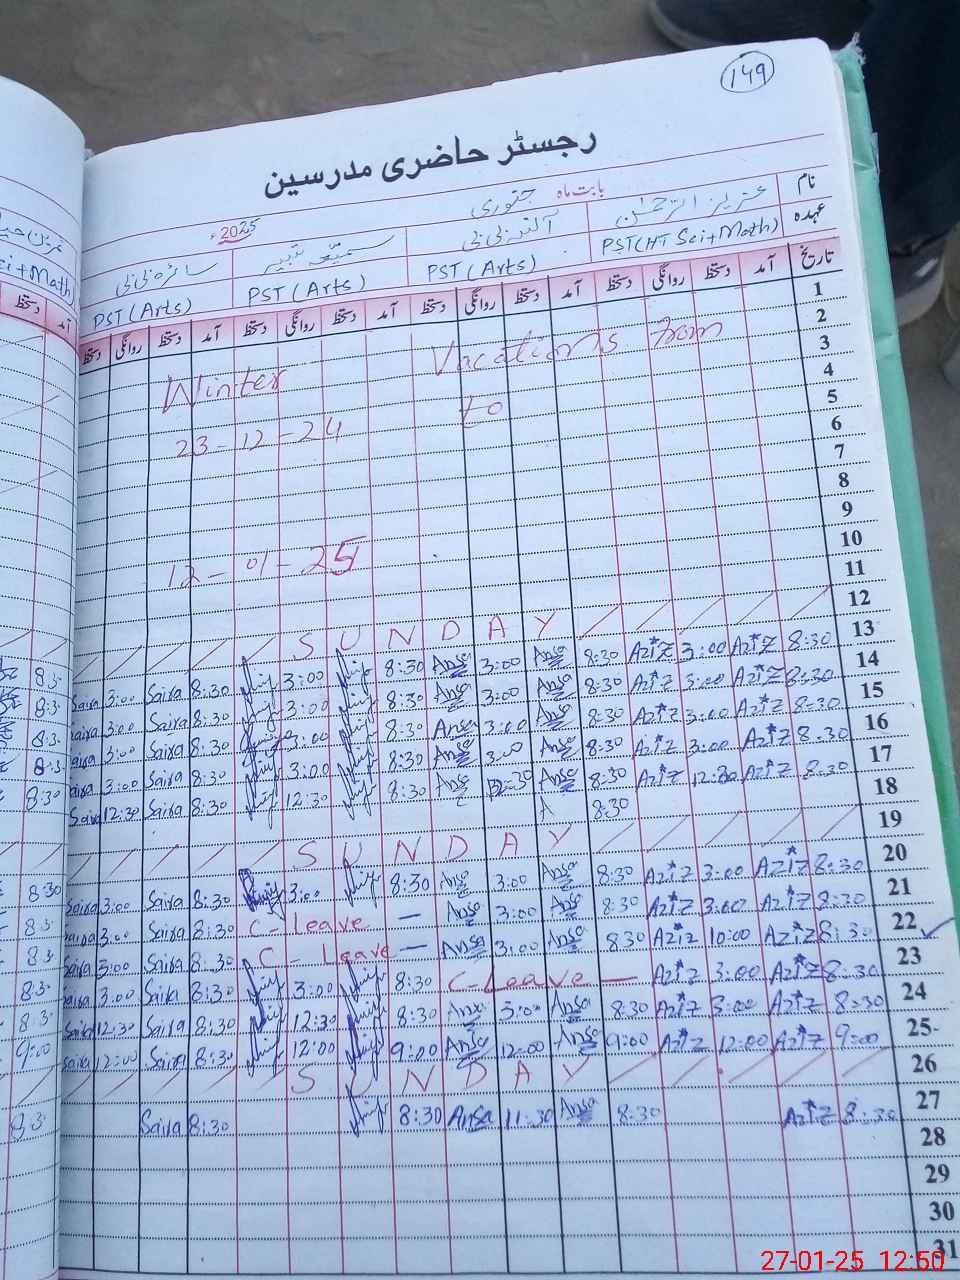 149
رجسٹر حاضری مدرسین
بابت ماہ جنوری 2025ء
نام عزیز الرحمٰن آنسہ بی بی سمیعہ سائرہ بی بی
عہدہ PST(HT Sci+Math) PST (Arts) PST (Arts) PST (Arts)
تاریخ آمد دستخط روانگی دستخط آمد دستخط روانگی دستخط آمد دستخط روانگی دستخط آمد دستخط روانگی دستخط
1
2
3 Winter Vacations from
4
5 23-12-24 to
6
7
8
9
10 12-01-25
11
12 SUNDAY
13 Saira 3:00 Saira 8:30 3:00 8:30 Ansa 3:00 Ansa 8:30 Aziz 3:00 Aziz 8:30
14 Saira 3:00 Saira 8:30 3:00 8:30 Ansa 3:00 Ansa 8:30 Aziz 3:00 Aziz 8:30
15 Saira 3:00 Saira 8:30 3:00 8:30 Ansa 3:00 Ansa 8:30 Aziz 3:00 Aziz 8:30
16 Saira 3:00 Saira 8:30 3:00 8:30 Ansa 3:00 Ansa 8:30 Aziz 3:00 Aziz 8:30
17 Saira 12:30 Saira 8:30 12:30 8:30 Ansa 12:30 Ansa 8:30 Aziz 12:30 Aziz 8:30
18 A 8:30
19 SUNDAY
20 Saira 3:00 Saira 8:30 3:00 8:30 Ansa 3:00 Ansa 8:30 Aziz 3:00 Aziz 8:30
21 Saira 3:00 Saira 8:30 C-Leave — Ansa 3:00 Ansa 8:30 Aziz 3:00 Aziz 8:30
22 Saira 3:00 Saira 8:30 C-Leave — Ansa 3:00 Ansa 8:30 Aziz 10:00 Aziz 8:30
23 Saira 3:00 Saira 8:30 3:00 8:30 C-Leave — Aziz 3:00 Aziz 8:30
24 Saira 12:30 Saira 8:30 12:30 8:30 Ansa 3:00 Ansa 8:30 Aziz 3:00 Aziz 8:30
25 Saira 12:00 Saira 8:30 12:00 9:00 Ansa 12:00 Ansa 9:00 Aziz 12:00 Aziz 9:00
26 SUNDAY
27 Saira 8:30 8:30 Ansa 11:30 Ansa 8:30 Aziz 8:30
28
29
30
31
27-01-25 12:50